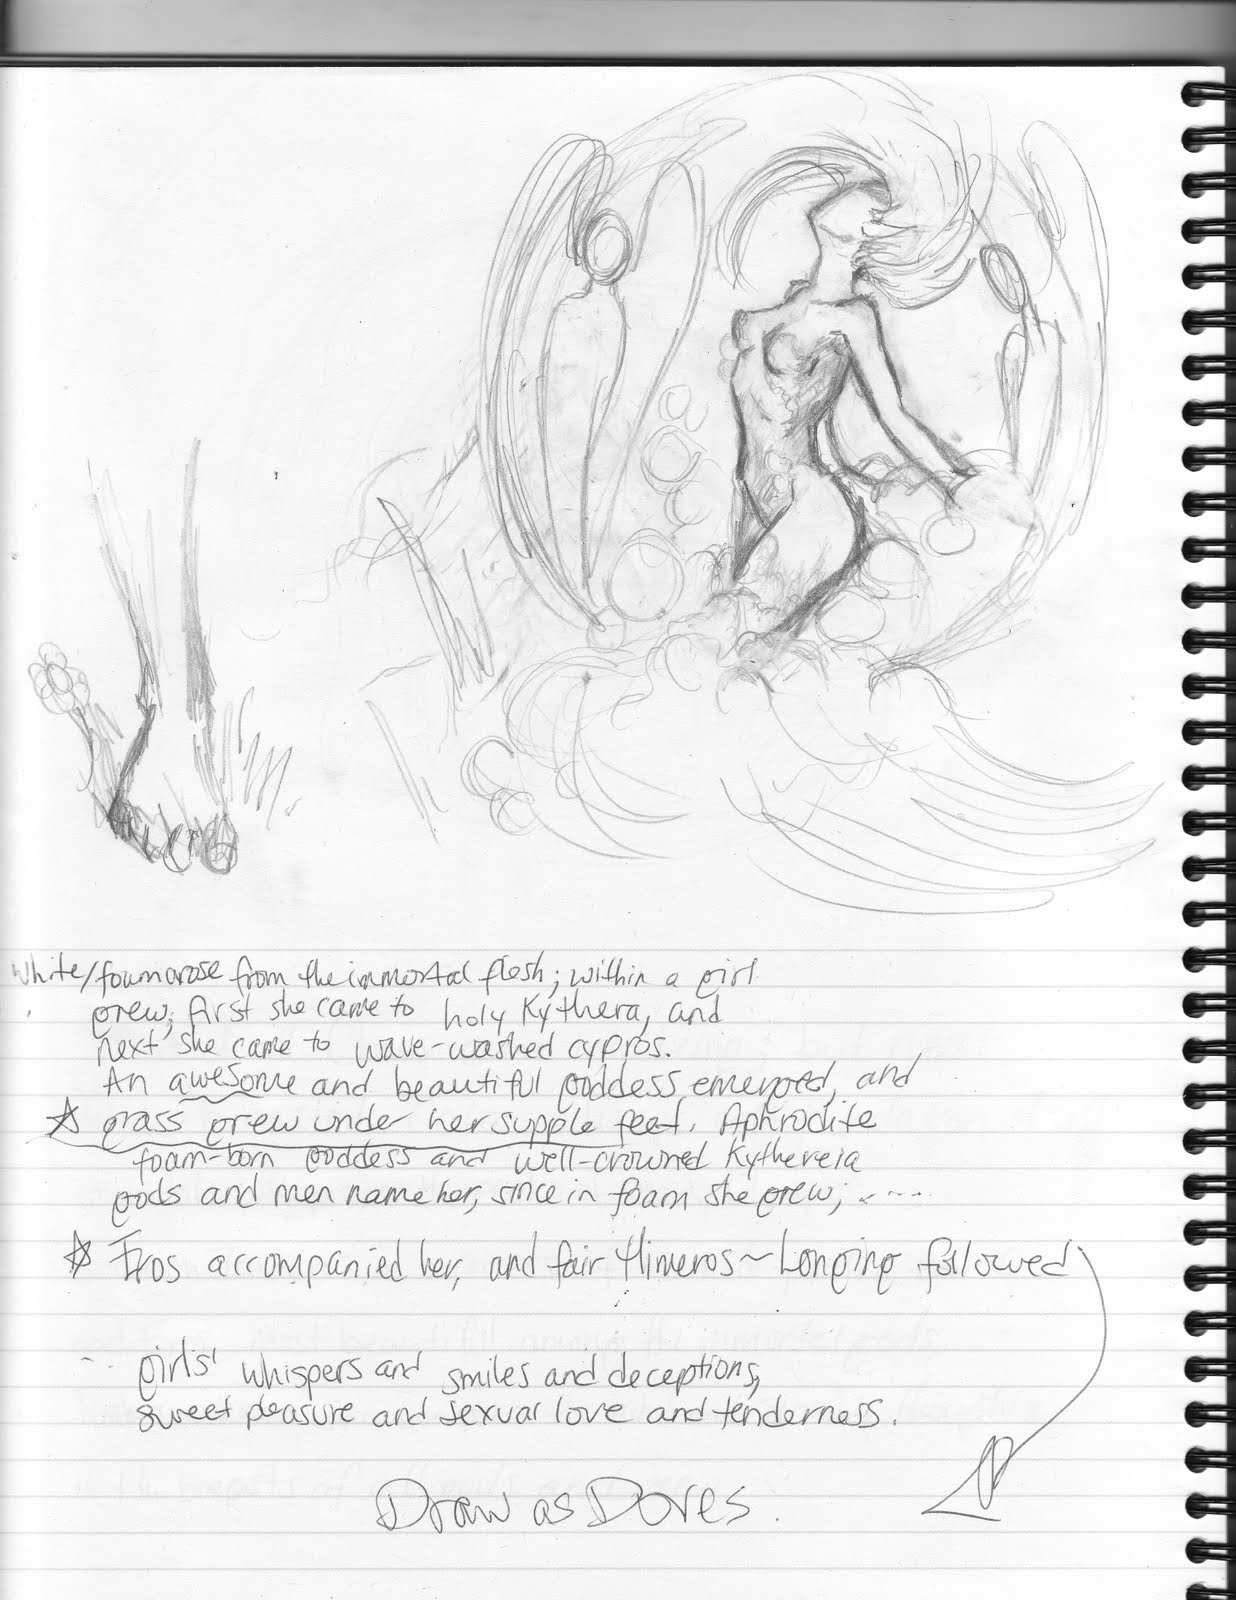 white/foam arose from the immortal flesh; within a girl
grew; first she came to holy Kythera, and
next she came to wave-washed cypros.
An awesome and beautiful goddess emerged, and
grass grew under her supple feet. Aphrodite
foam-born goddess and well-crowned Kythereia
gods and men name her, since in foam she grew; .....
Eros accompanied her, and fair Himeros ~ Longing followed
.. girls' whispers and smiles and deceptions,
sweet pleasure and sexual love and tenderness.
Draw as Doves.